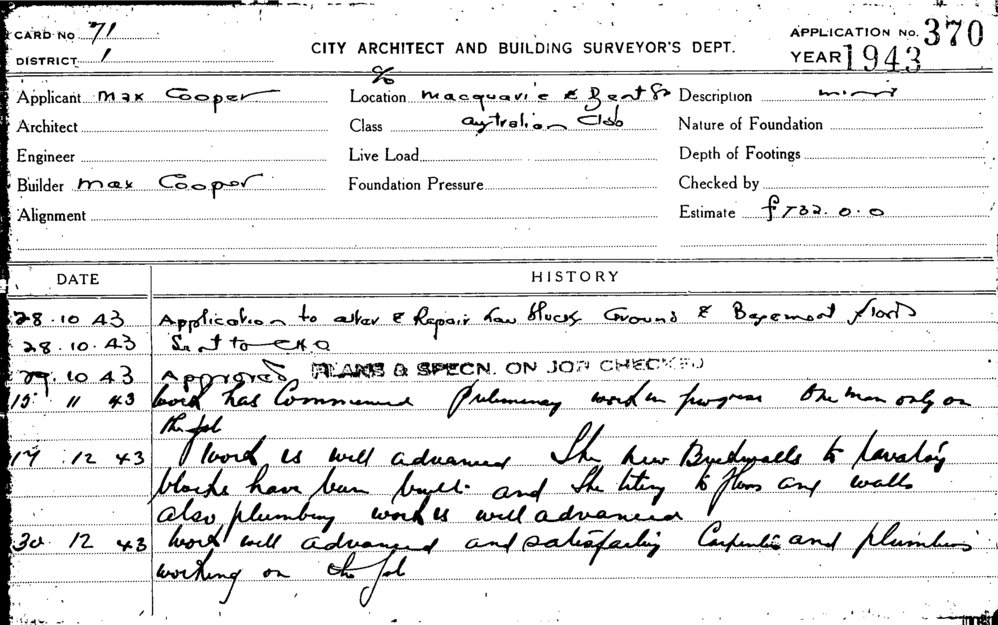 CARD No 71
DISTRICT 1
CITY ARCHITECT AND BUILDING SURVEYOR'S DEPT.
APPLICATION No. 370
YEAR 1943
Applicant Max Cooper
Architect
Engineer
Builder Max Cooper
Alignment
c/o
Location Macquarie & Bent Sts
Class Australian Club
Live Load
Foundation Pressure
Description minor
Nature of Foundation
Depth of Footings
Checked by
Estimate £732.0.0
DATE HISTORY
28.10.43 Application to alter & Repair Lav Blocks Ground & Basement floors
28.10.43 Sent to CHO
29.10.43 Approved PLANS & SPECN. ON JOB CHECKED
15 11 43 Work has Commenced Preliminary work in progress One man only on
the job
17.12 43 Work is well advanced The new Brickwalls to Lavatory
blocks have been built and the tiling to floors and walls
also plumbing work is well advanced
30 12 43 Work well advanced and satisfactory Carpenters and plumbers
working on the job